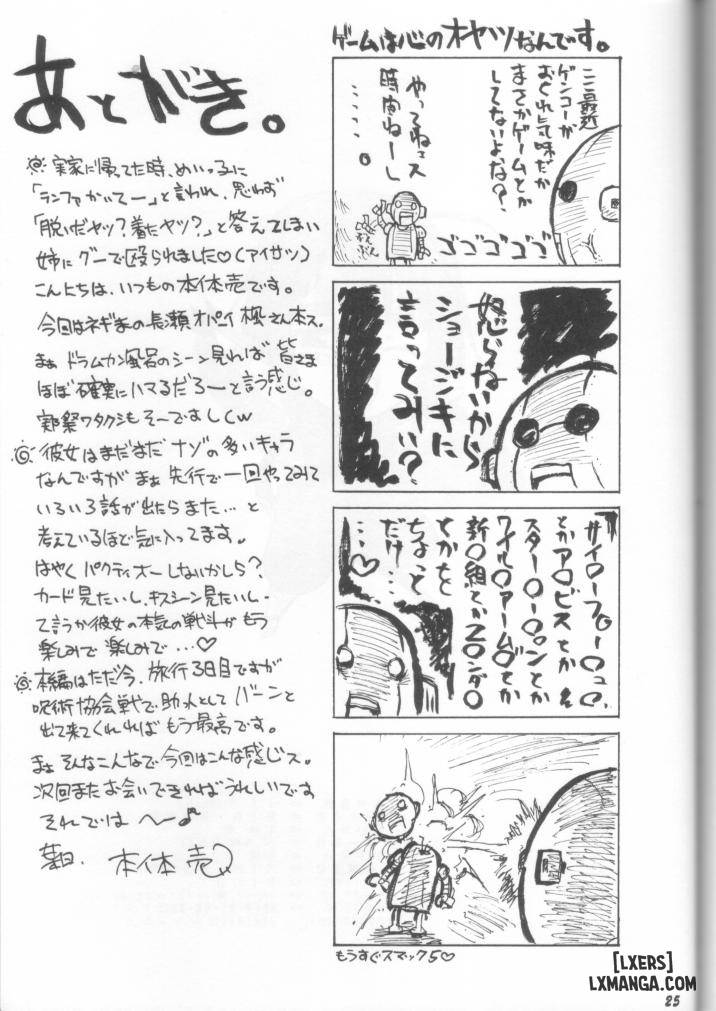 あとがき。
実家に帰ってた時、めいっ子に
「ランファかいてー」と言われ、思わず
「脱いだヤツ？着たヤツ？」と答えてしまい
姉にグーで殴られました♡(アイサツ)
こんにちは、いつもの本体売です。
今回はネギまの長瀬オパイ楓さん本ス。
まぁドラムカン風呂のシーン見れば皆さま
ほぼ確実にハマるだろーと言う感じ。
実際ワタクシもそーですしw
彼女はまだまだナゾの多いキャラ
なんですがまぁ先行で一回やってみて
いろいろ話が出たらまた…と
考えているほど気に入ってます。
はやくパクティオーしないかしら？
カード見たいし、キスシーン見たいし
て言うか彼女の本気の戦斗がもう
楽しみで楽しみで…♡
本編はただ今、旅行3日目ですが
呪術協会戦で助っ人としてバーンと
出て来てくれればもう最高です。
まぁそんなこんなで今回はこんな感じス。
次回またお会いできればうれしいです
それでは〜♪
本体売
ゲームは心のオヤツなんです。
ここ最近
ゲンコーが
おくれ気味だが
まさかゲームとか
してないよな？
やってねェス
時間ねーし
……。
ゴゴゴゴゴ
怒らないから
ショージキに
言ってみい？
サイ○ーフォ○ーロ○○
とかア○ビスとか
スター○ー○ンとか
ワイル○アーム○とか
新○組とかZ○ンダ○
とかを
ちょっと
だけ…
…♡
もうすぐスマック5♡
[LXERS]
LXMANGA.COM
25